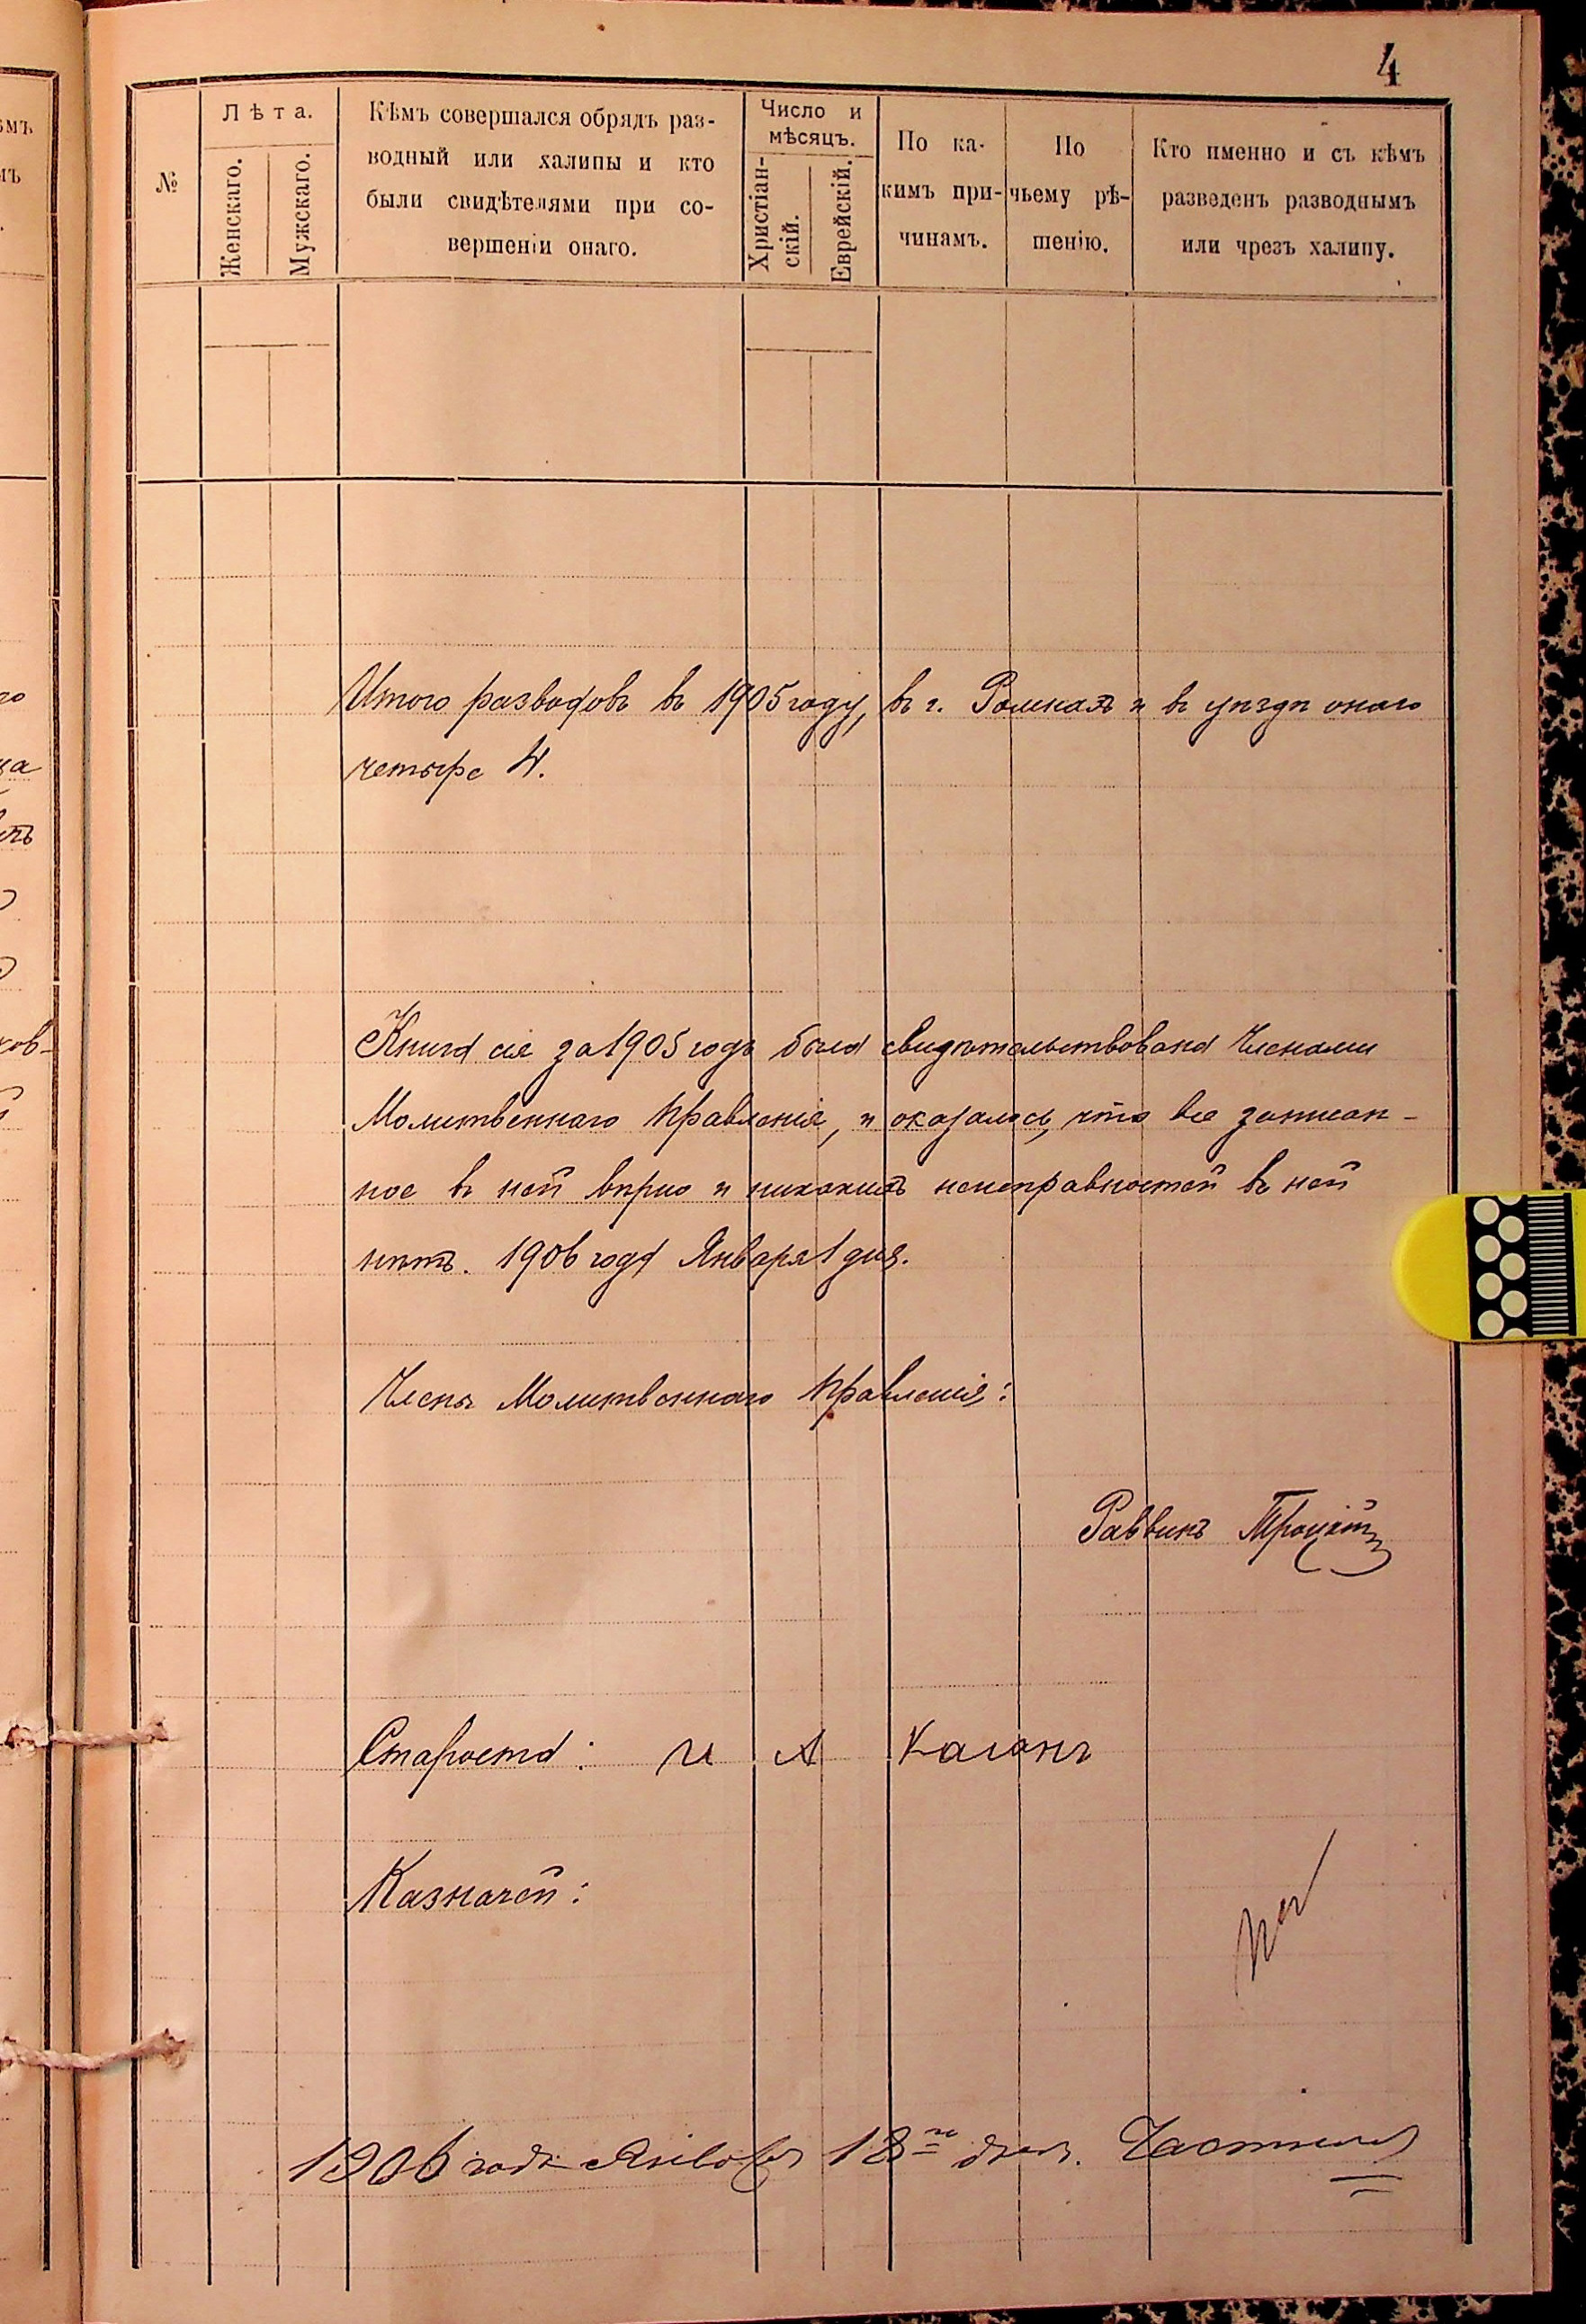 4
№
Лѣта.
Женскаго.
Мужскаго.
Кѣмъ совершался обрядъ раз-
водный или халицы и кто
были свидѣтелями при со-
вершеніи онаго.
Число и
мѣсяцъ.
Христіан-
скій.
Еврейскій.
По ка-
кимъ при-
чинамъ.
По
чьему рѣ-
шенію.
Кто именно и съ кѣмъ
разведенъ разводнымъ
или чрезъ халицу.
Итого разводовъ въ 1905 году, въ г. Ромнахъ и въ уѣздѣ онаго
четыре 4.
Книга сія за 1905 годъ была свидѣтельствована Членами
Молитвеннаго Правленія, и оказалось, что все записан-
ное въ ней вѣрно и никакихъ неисправностей въ ней
нѣтъ. 1906 года Января 1 дня.
Члены Молитвеннаго Правленія:
Раввинъ Троцкій
Староста: И А Каганъ
Казначей:
1906 года Января 18го дня.